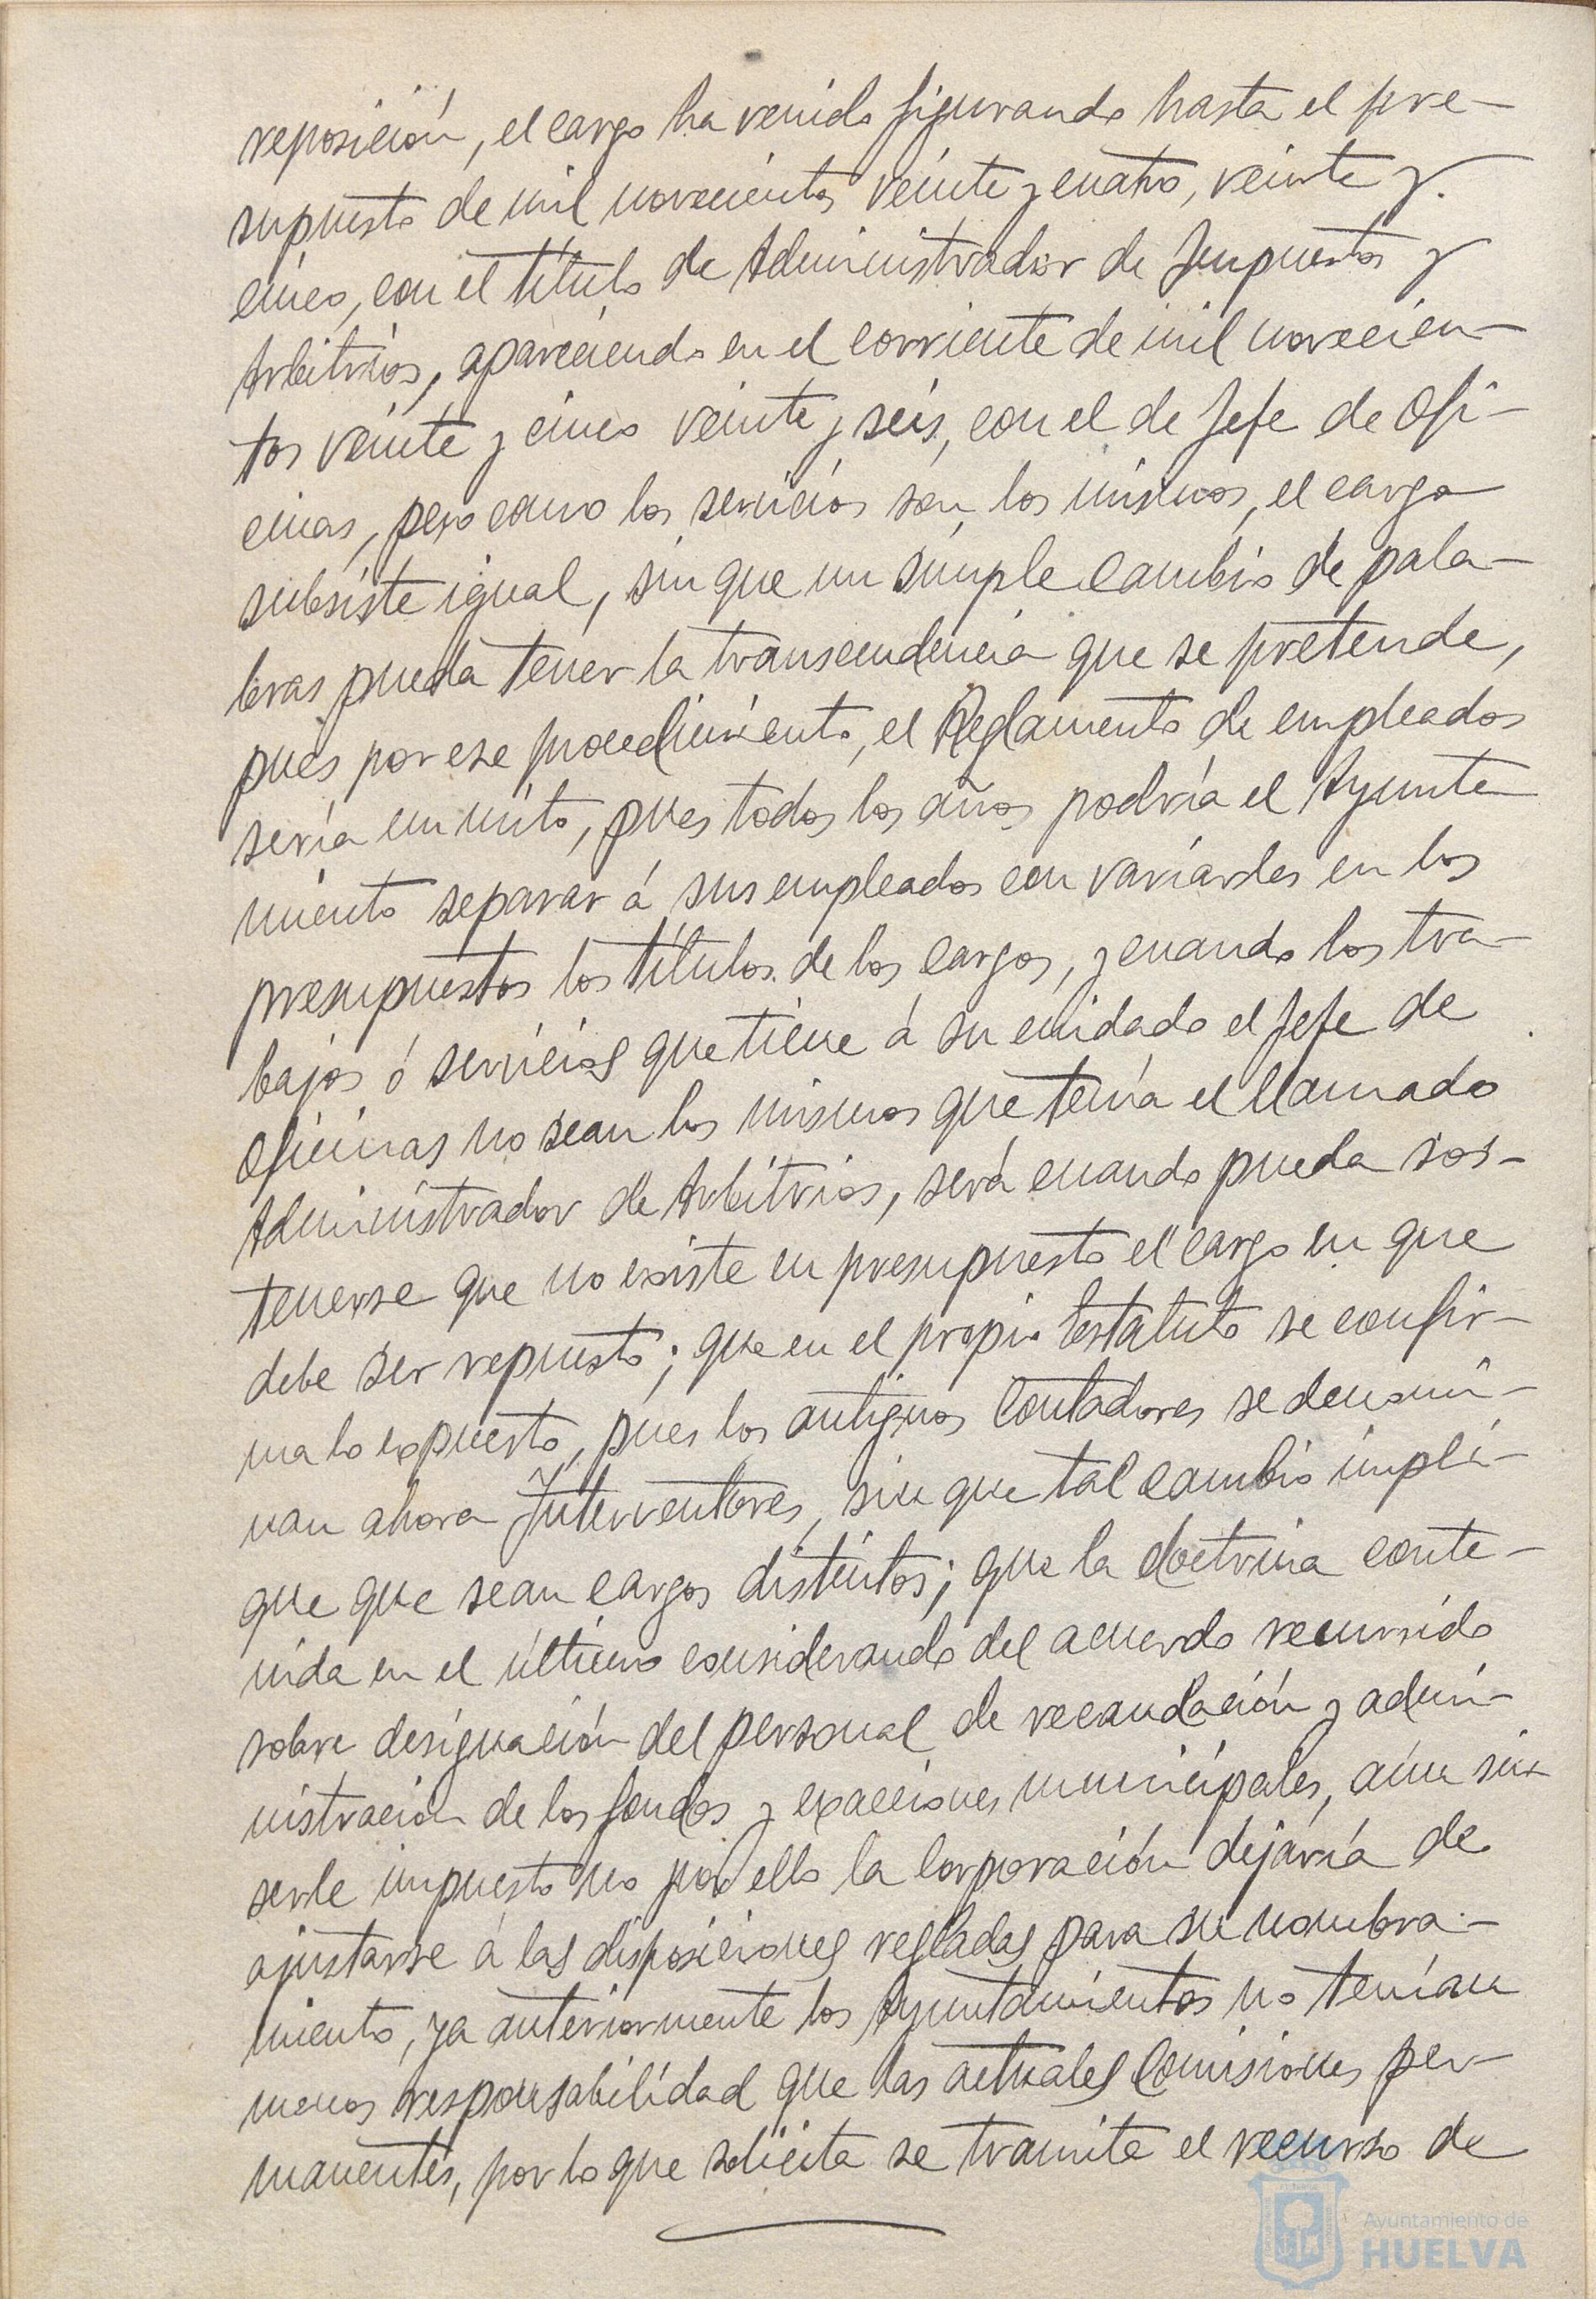 reposición, el cargo ha venido figurando hasta el pre-
supuesto de mil novecientos veinte y cuatro, veinte y
cinco, con el título de Administrador de Impuestos y
Arbitrios, apareciendo en el corriente de mil novecien-
tos veinte y cinco veinte y seis, con el de Jefe de Ofi-
cinas, pero como los servicios son los mismos, el cargo
subsiste igual, sin que un simple cambio de pala-
bras pueda tener la transcendencia que se pretende,
pues por ese procedimiento, el Reglamento de empleados
sería un mito, pues todos los años podría el Ayunta
miento separar á sus empleados con variarles en los
presupuestos los títulos de los cargos, y cuando los tra-
bajos ó servicios que tiene á su cuidado el Jefe de
Oficinas no sean los mismos que tenía el llamado
Administrador de Arbitrios, será cuando pueda sos-
tenerse que no existe en presupuesto el cargo en que
debe ser repuesto; que en el propio Estatuto se confir-
ma lo expuesto, pues los antiguos Contadores se denomi-
nan ahora Interventores, sin que tal cambio impli-
que que sean cargos distintos; que la doctrina conte-
nida en el último considerando del acuerdo recurrido
sobre designación del personal de recaudación y admi-
nistración de los fondos y exacciones municipales, aún sin
serle impuesto no por ello la Corporación dejaría de
ajustarse á las disposiciones regladas para su nombra-
miento, ya anteriormente los Ayuntamientos no tenían
menos responsabilidad que las actuales Comisiones per-
manentes, por lo que solicita se tramite el recurso de
Ayuntamiento de
HUELVA